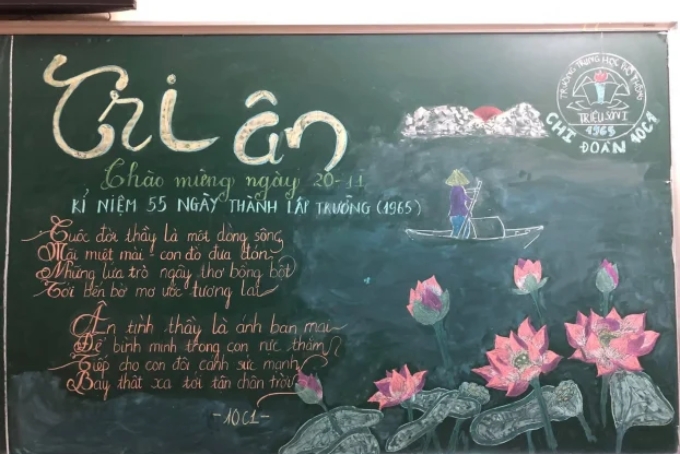 Tri ân
Chào mừng ngày 20-11
KỈ NIỆM 55 NGÀY THÀNH LẬP TRƯỜNG (1965)
Cuộc đời thầy là một dòng sông
Mãi miệt mài - con đò đưa đón
Những lứa trò ngây thơ bồng bột
Tới bến bờ mơ ước tương lai
Ân tình thầy là ánh ban mai
Để bình minh trong con rực thắm
Tiếp cho con đôi cánh sức mạnh
Bay thật xa tới tận chân trời
-10C1-
TRƯỜNG TRUNG HỌC PHỔ THÔNG
TRIỆU SƠN I
1965
CHI ĐOÀN 10C1